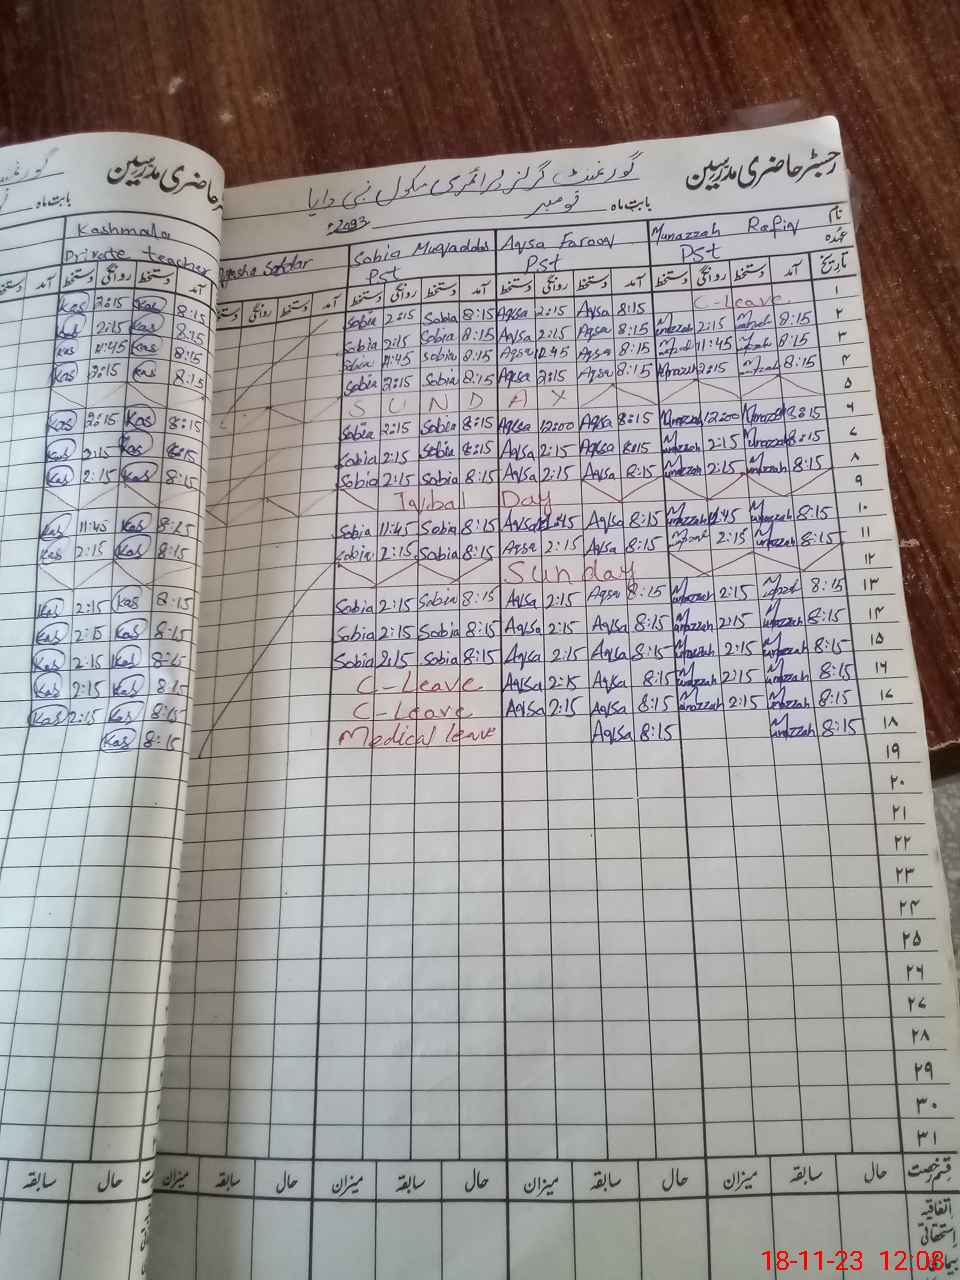 رجسٹر حاضری مدرسین
گورنمنٹ گرلز پرائمری سکول نبی دایا
بابت ماہ نومبر 2023
نام Munazzah Rafiq Aqsa Farooq Sobia Muqaddas Ayesha Safdar
عہدہ Pst Pst Pst
تاریخ آمد دستخط روانگی دستخط آمد دستخط روانگی دستخط آمد دستخط روانگی دستخط آمد دستخط روانگی دستخط
۱ Sobia 2:15 Sobia 8:15 Aqsa 2:15 Aqsa 8:15 C-leave
۲ Sobia 2:15 Sobia 8:15 Aqsa 2:15 Aqsa 8:15 Munazzah 2:15 Munazzah 8:15
۳ Sobia 11:45 Sobia 8:15 Aqsa 11:45 Aqsa 8:15 Munazzah 11:45 Munazzah 8:15
۴ Sobia 2:15 Sobia 8:15 Aqsa 2:15 Aqsa 8:15 Munazzah 2:15 Munazzah 8:15
۵ SUNDAY
۶ Sobia 2:15 Sobia 8:15 Aqsa 12:00 Aqsa 8:15 Munazzah 12:00 Munazzah 8:15
۷ Sobia 2:15 Sobia 8:15 Aqsa 2:15 Aqsa 8:15 Munazzah 2:15 Munazzah 8:15
۸ Sobia 2:15 Sobia 8:15 Aqsa 2:15 Aqsa 8:15 Munazzah 2:15 Munazzah 8:15
۹ Iqbal Day
۱۰ Sobia 11:45 Sobia 8:15 Aqsa 11:45 Aqsa 8:15 Munazzah 11:45 Munazzah 8:15
۱۱ Sobia 2:15 Sobia 8:15 Aqsa 2:15 Aqsa 8:15 Munazzah 2:15 Munazzah 8:15
۱۲ Sunday
۱۳ Sobia 2:15 Sobia 8:15 Aqsa 2:15 Aqsa 8:15 Munazzah 2:15 Munazzah 8:15
۱۴ Sobia 2:15 Sobia 8:15 Aqsa 2:15 Aqsa 8:15 Munazzah 2:15 Munazzah 8:15
۱۵ Sobia 2:15 Sobia 8:15 Aqsa 2:15 Aqsa 8:15 Munazzah 2:15 Munazzah 8:15
۱۶ C-Leave Aqsa 2:15 Aqsa 8:15 Munazzah 2:15 Munazzah 8:15
۱۷ C-Leave Aqsa 2:15 Aqsa 8:15 Munazzah 2:15 Munazzah 8:15
۱۸ Medical leave Aqsa 8:15 Munazzah 8:15
۱۹
۲۰
۲۱
۲۲
۲۳
۲۴
۲۵
۲۶
۲۷
۲۸
۲۹
۳۰
۳۱
قسم رخصت حال سابقہ میزان حال سابقہ میزان حال سابقہ میزان
اتفاقیہ
استحقاقی
بیماری
حاضری مدرسین
بابت ماہ
Kashmala
Private teacher
آمد دستخط روانگی دستخط آمد دستخط
Kas 2:15 Kas 8:15
Kas 2:15 Kas 8:15
Kas 11:45 Kas 8:15
Kas 2:15 Kas 8:15
Kas 2:15 Kas 8:15
Kas 2:15 Kas 8:15
Kas 2:15 Kas 8:15
Kas 11:45 Kas 8:15
Kas 2:15 Kas 8:15
Kas 2:15 Kas 8:15
Kas 2:15 Kas 8:15
Kas 2:15 Kas 8:15
Kas 2:15 Kas 8:15
Kas 2:15 Kas 8:15
Kas 8:15
حال سابقہ
18-11-23 12:08